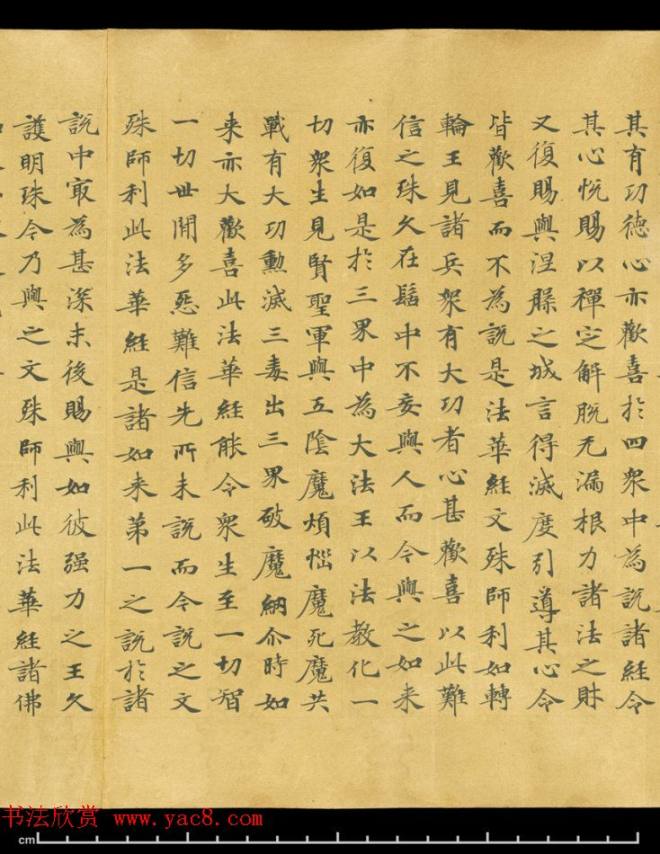 其有功德心亦歡喜於四衆中為說諸經令
其心悅賜以禪定解脫无漏根力諸法之財
又復賜與涅槃之城言得滅度引導其心令
皆歡喜而不為說是法華經文殊師利如轉
輪王見諸兵衆有大功者心甚歡喜以此難
信之珠久在髻中不妄與人而今與之如来
亦復如是於三界中為大法王以法教化一
切衆生見賢聖軍與五陰魔煩惱魔死魔共
戰有大功勳滅三毒出三界破魔納尒時如
来亦大歡喜此法華經能令衆生至一切智
一切世閒多惡難信先所未說而今說之文
殊師利此法華經是諸如来第一之說於諸
說中㝡為甚深末後賜與如彼强力之王久
護明珠今乃與之文殊師利此法華經諸佛
书法欣赏 www.yac8.com
cm